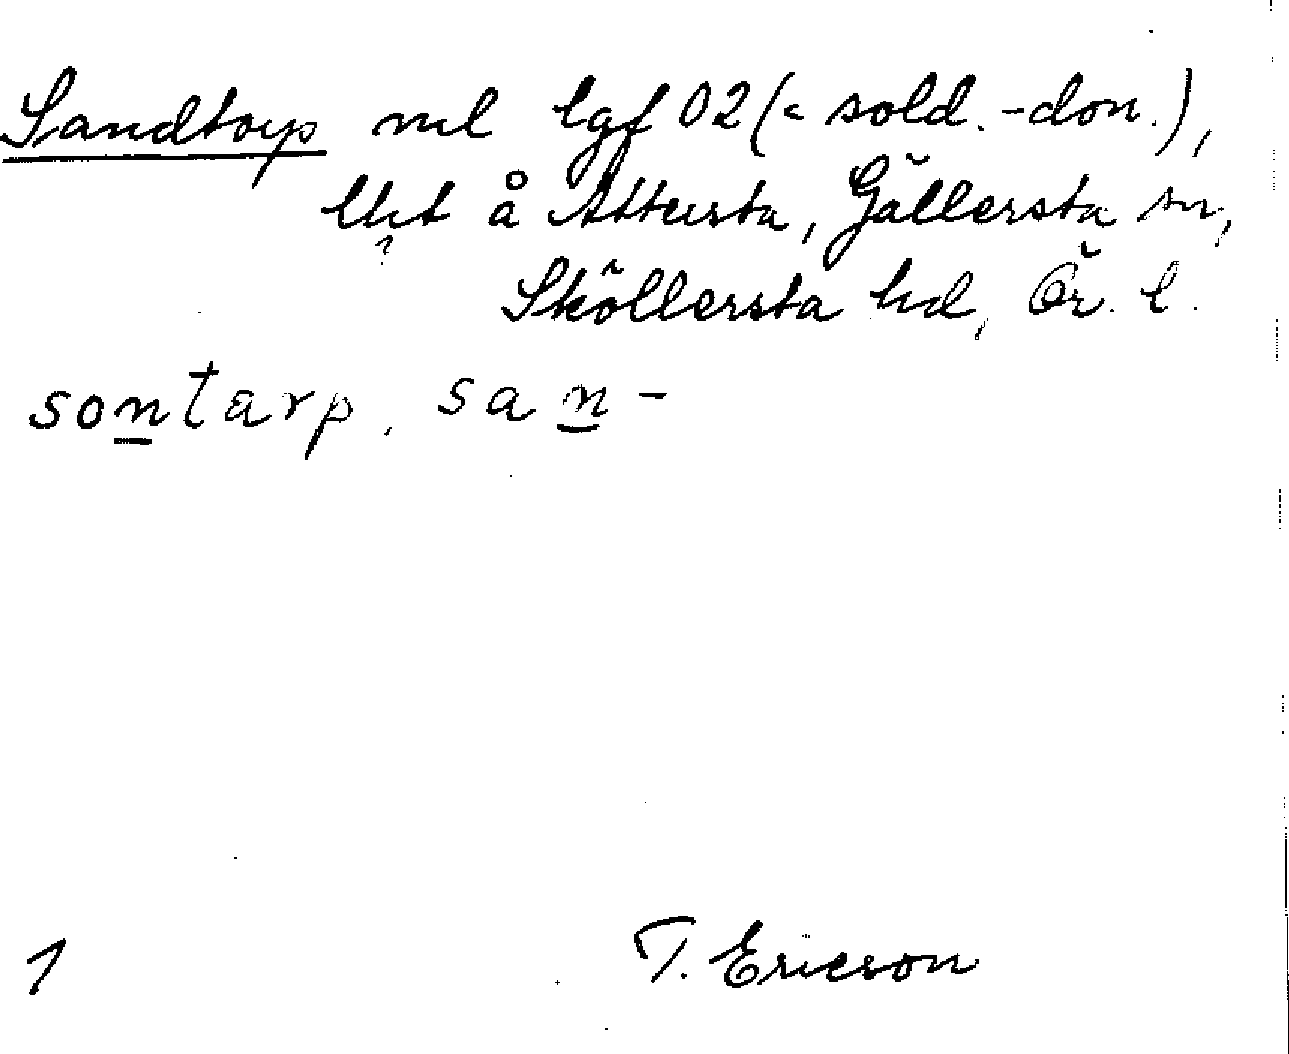 Sandtorp ml lgf 02 (< sold.-don.),
å Attersta, Gällersta sn,
Sköllersta hd, Ör. l.
sontarp, san-
1 T. Ericson